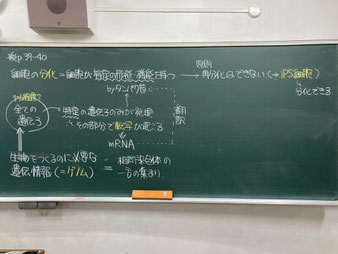 教p.39-40
細胞の分化=細胞が特定の形態、機能を持つ → 再分化はできない(⇔iPS細胞)
byタンパク質
分化できる
全ての遺伝子
特定の遺伝子のみが発現
その部分で転写が起こる
翻訳
mRNA
生物をつくるのに必要な
遺伝情報(=ゲノム) = 相同染色体の
一方の集まり